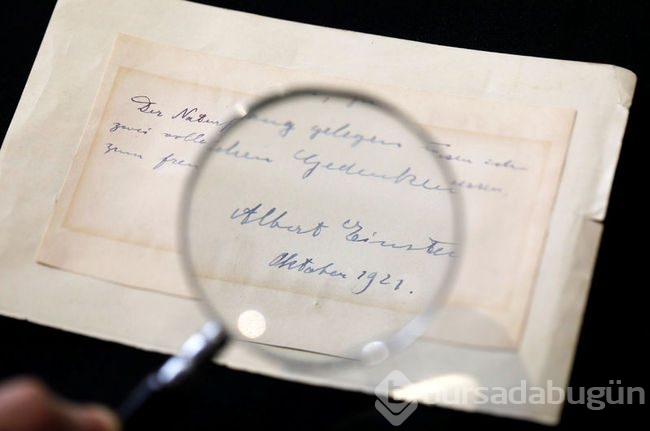 Der Natur ang gelegen
zwei volle chen Gedenken
zum freu
Albert Einstei
Oktober 1921.
bursadabugün